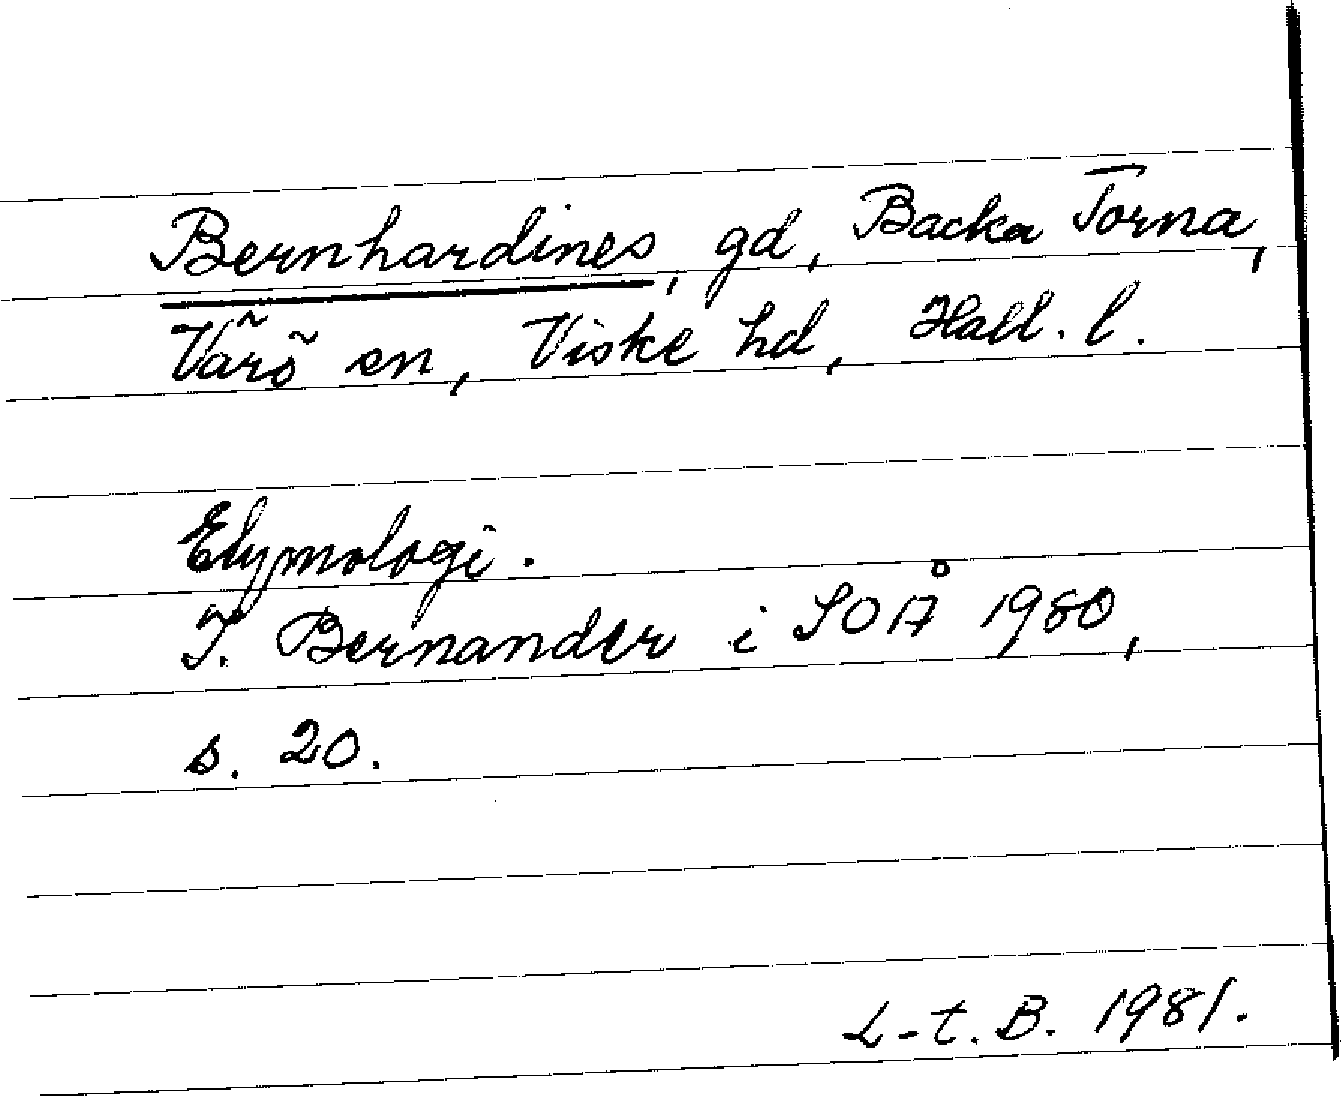 Bernhardines, gd, Backa Torna,
Värö sn, Viske hd, Hall. l.
Etymologi.
I. Bernander i SOÅ 1980,
s. 20.
L-t. B. 1981.